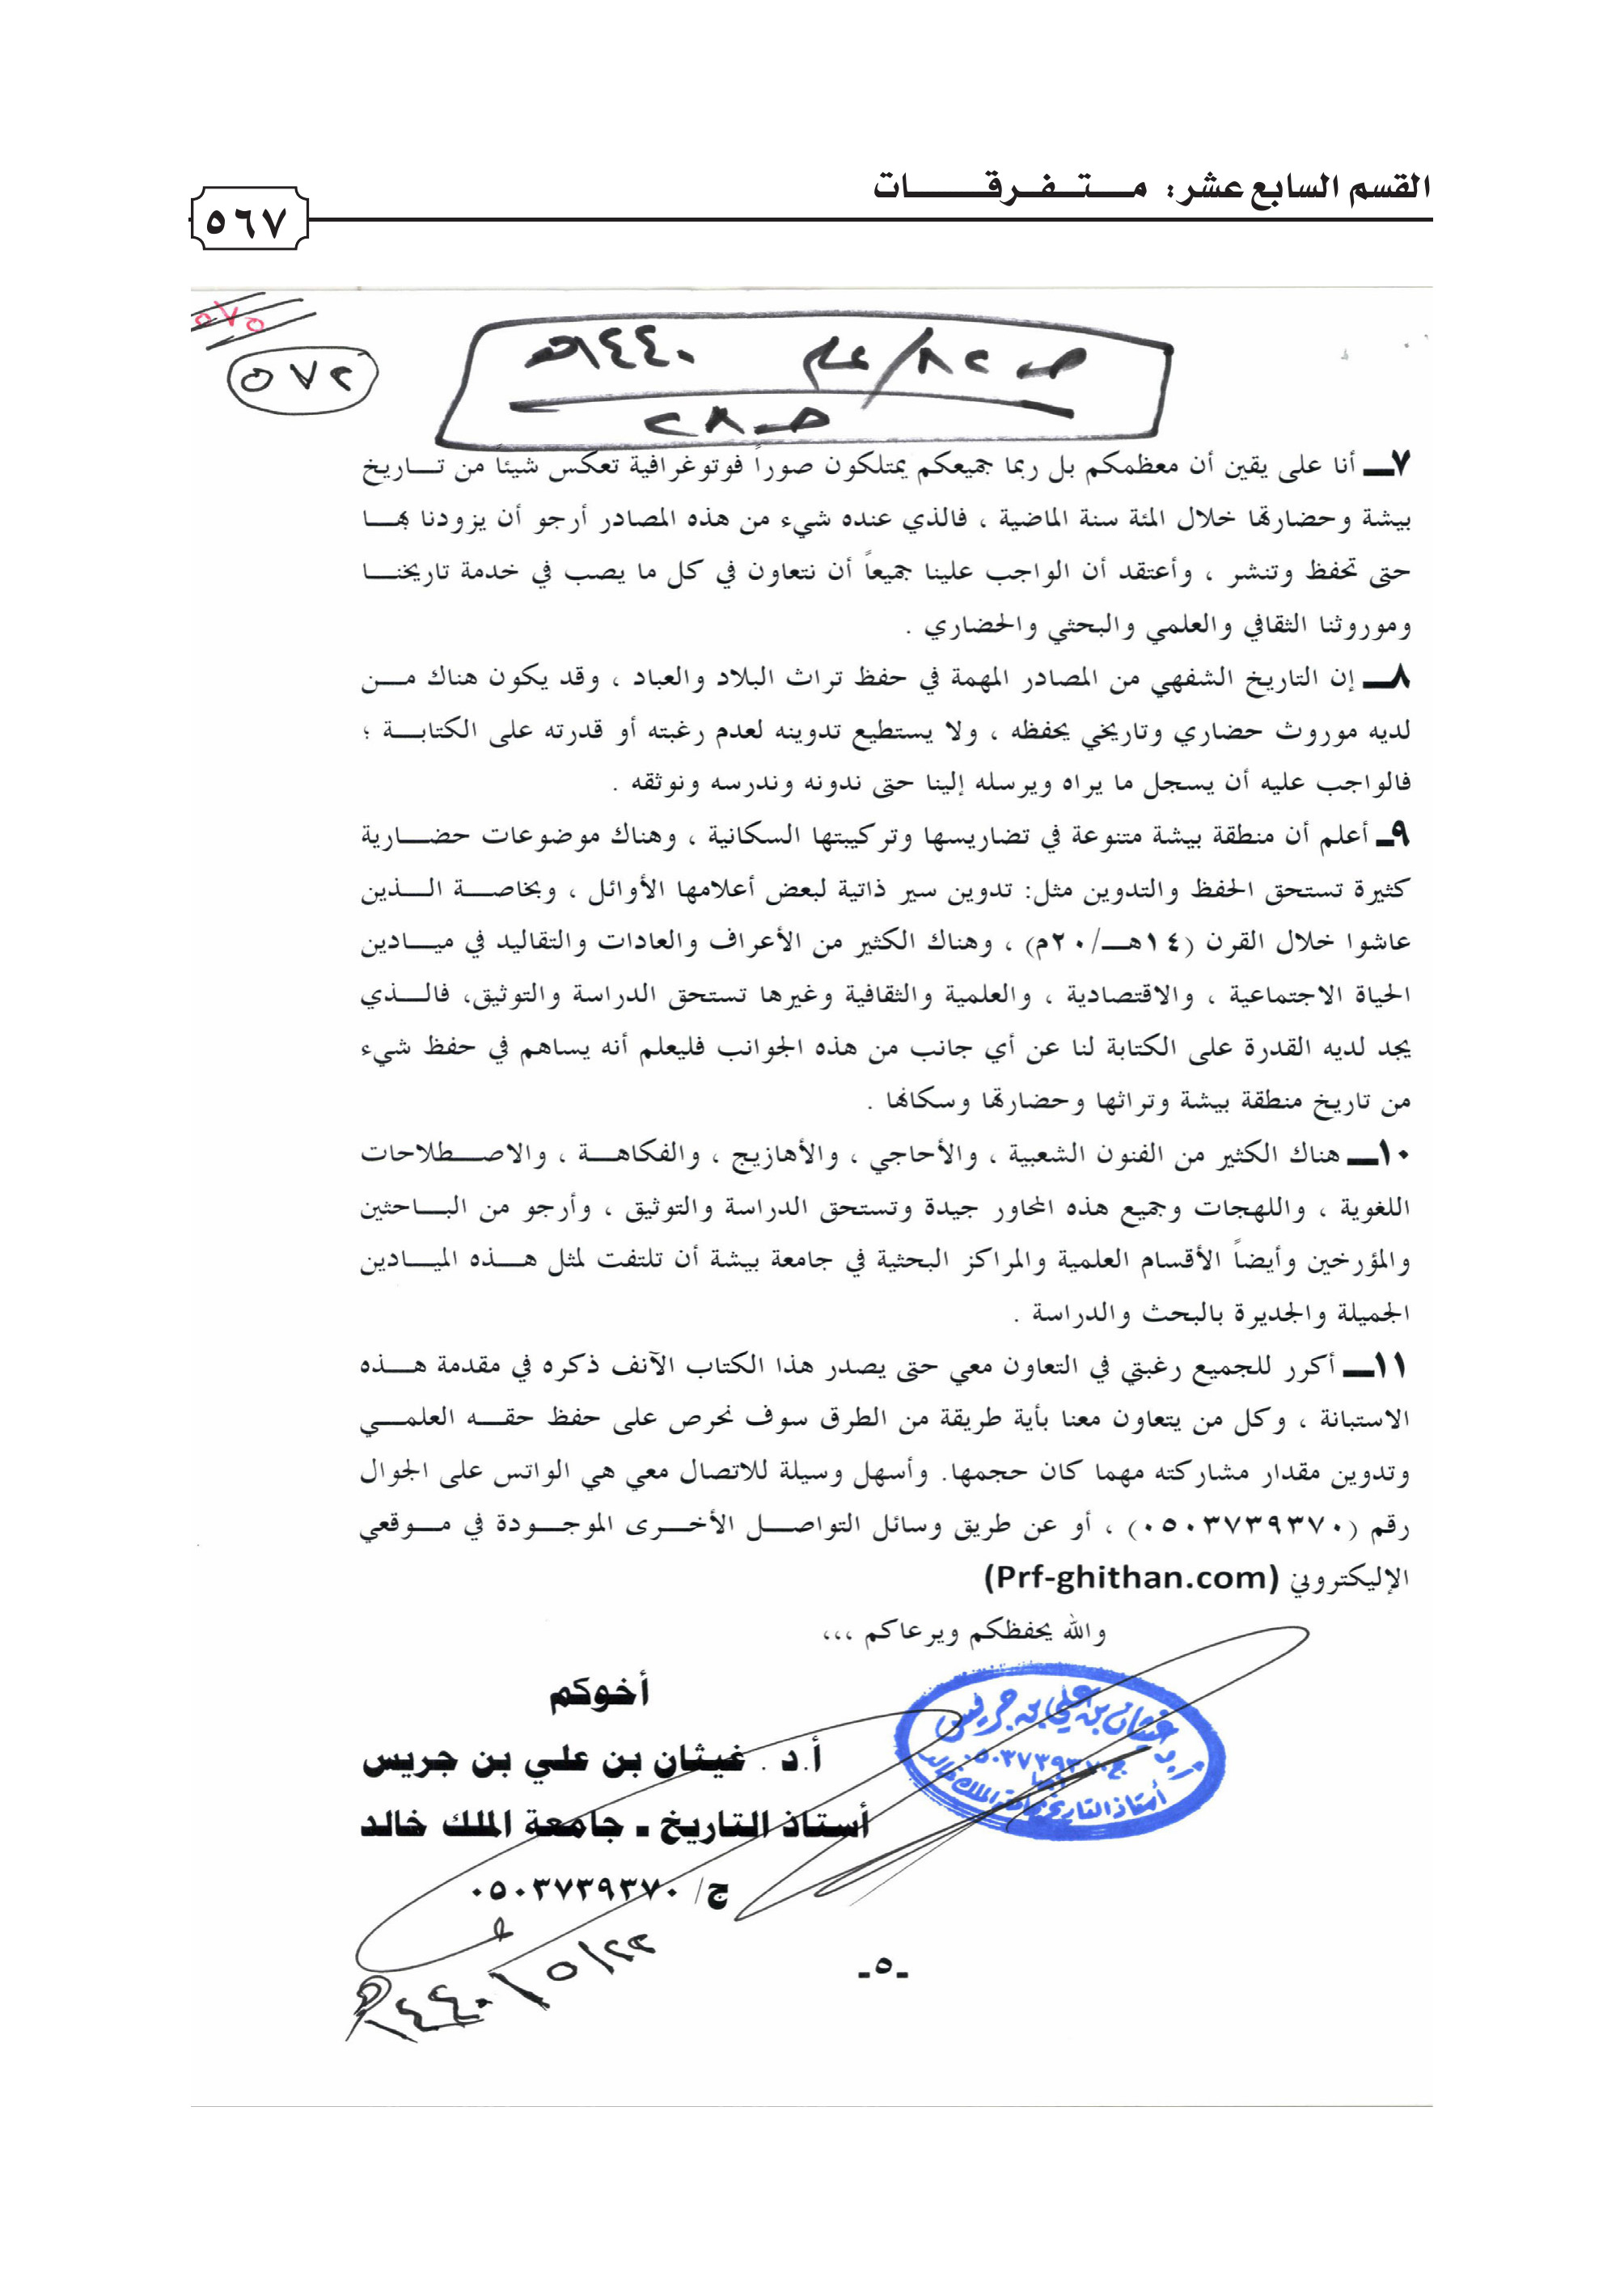 القسم السابع عشر: متفرقات
٥٦٧
٥٧٥
٥٧٢
ص ٢٨/عام ١٤٤٠هـ
ص ٢٨
٧ـ أنا على يقين أن معظمكم بل ربما جميعكم يمتلكون صوراً فوتوغرافية تعكس شيئاً من تاريخ
بيشة وحضارتها خلال المئة سنة الماضية ، فالذي عنده شيء من هذه المصادر أرجو أن يزودنا بها
حتى تحفظ وتنشر ، وأعتقد أن الواجب علينا جميعاً أن نتعاون في كل ما يصب في خدمة تاريخنا
وموروثنا الثقافي والعلمي والبحثي والحضاري .
٨ـ إن التاريخ الشفهي من المصادر المهمة في حفظ تراث البلاد والعباد ، وقد يكون هناك من
لديه موروث حضاري وتاريخي يحفظه ، ولا يستطيع تدوينه لعدم رغبته أو قدرته على الكتابة ؛
فالواجب عليه أن يسجل ما يراه ويرسله إلينا حتى ندونه وندرسه ونوثقه .
٩ـ أعلم أن منطقة بيشة متنوعة في تضاريسها وتركيبتها السكانية ، وهناك موضوعات حضارية
كثيرة تستحق الحفظ والتدوين مثل: تدوين سير ذاتية لبعض أعلامها الأوائل ، وبخاصة الذين
عاشوا خلال القرن (١٤هـ/٢٠م) ، وهناك الكثير من الأعراف والعادات والتقاليد في ميادين
الحياة الاجتماعية ، والاقتصادية ، والعلمية والثقافية وغيرها تستحق الدراسة والتوثيق، فالذي
يجد لديه القدرة على الكتابة لنا عن أي جانب من هذه الجوانب فليعلم أنه يساهم في حفظ شيء
من تاريخ منطقة بيشة وتراثها وحضارتها وسكانها .
١٠ـ هناك الكثير من الفنون الشعبية ، والأحاجي ، والأهازيج ، والفكاهة ، والاصطلاحات
اللغوية ، واللهجات وجميع هذه المحاور جيدة وتستحق الدراسة والتوثيق ، وأرجو من الباحثين
والمؤرخين وأيضاً الأقسام العلمية والمراكز البحثية في جامعة بيشة أن تلتفت لمثل هذه الميادين
الجميلة والجديرة بالبحث والدراسة .
١١ـ أكرر للجميع رغبتي في التعاون معي حتى يصدر هذا الكتاب الآنف ذكره في مقدمة هذه
الاستبانة ، وكل من يتعاون معنا بأية طريقة من الطرق سوف نحرص على حفظ حقه العلمي
وتدوين مقدار مشاركته مهما كان حجمها. وأسهل وسيلة للاتصال معي هي الواتس على الجوال
رقم (٠٥٠٣٧٣٩٣٧٠) ، أو عن طريق وسائل التواصل الأخرى الموجودة في موقعي
الإليكتروني (Prf-ghithan.com)
والله يحفظكم ويرعاكم ،،،
أخوكم
أ.د . غيثان بن علي بن جريس
أستاذ التاريخ ـ جامعة الملك خالد
ج/ ٠٥٠٣٧٣٩٣٧٠
غيثان بن علي بن جريس
ج ٠٥٠٣٧٣٩٣٧٠
أستاذ التاريخ بجامعة الملك خالد
٢٣/٥/١٤٤٠هـ
ـ٥ـ